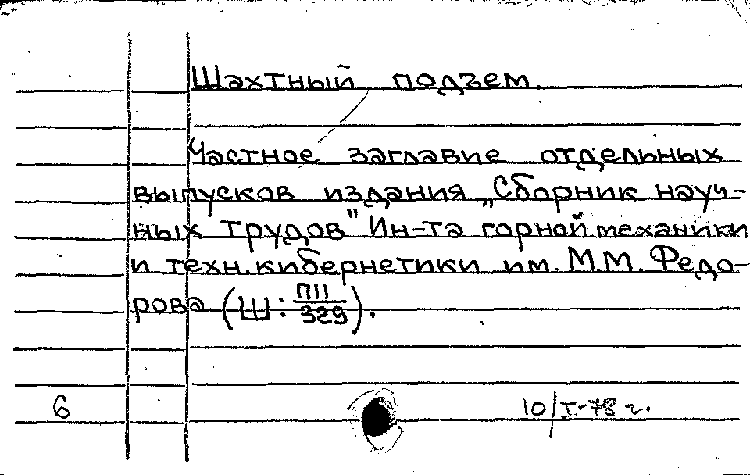 Шахтный подъем.
Частное заглавие отдельных
выпусков издания „Сборник науч-
ных трудов" Ин-та горной механики
и техн. кибернетики им. М.М. Федо-
рова (Ш: П11/329).
6 10/I-78 г.